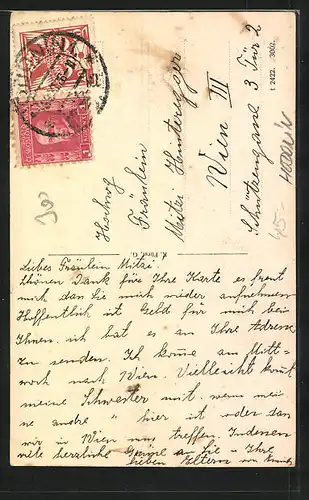 Hochnog
Fräulein
Mitzi Hunteregger
Wien III
Schützengasse 3 Tür 2
t 2422. 3002.
45-
Liebes Fräulein Mitzi!
Schönen Dank für Ihre Karte es freut
mich das Sie mich wieder aufnehmen
Hoffentlich ist Geld für mich bei
Ihnen. ich hat es an Ihre Adresse
zu senden. Ich kome am Mitt=
woch nach Wien. Vielleicht komt
meine Schwester mit. wenn mei-
ne andre " hier ist oder das
wir in Wien uns treffen. Indenen
viele herzliche Grüße an Sie u Ihre
lieben Eltern von